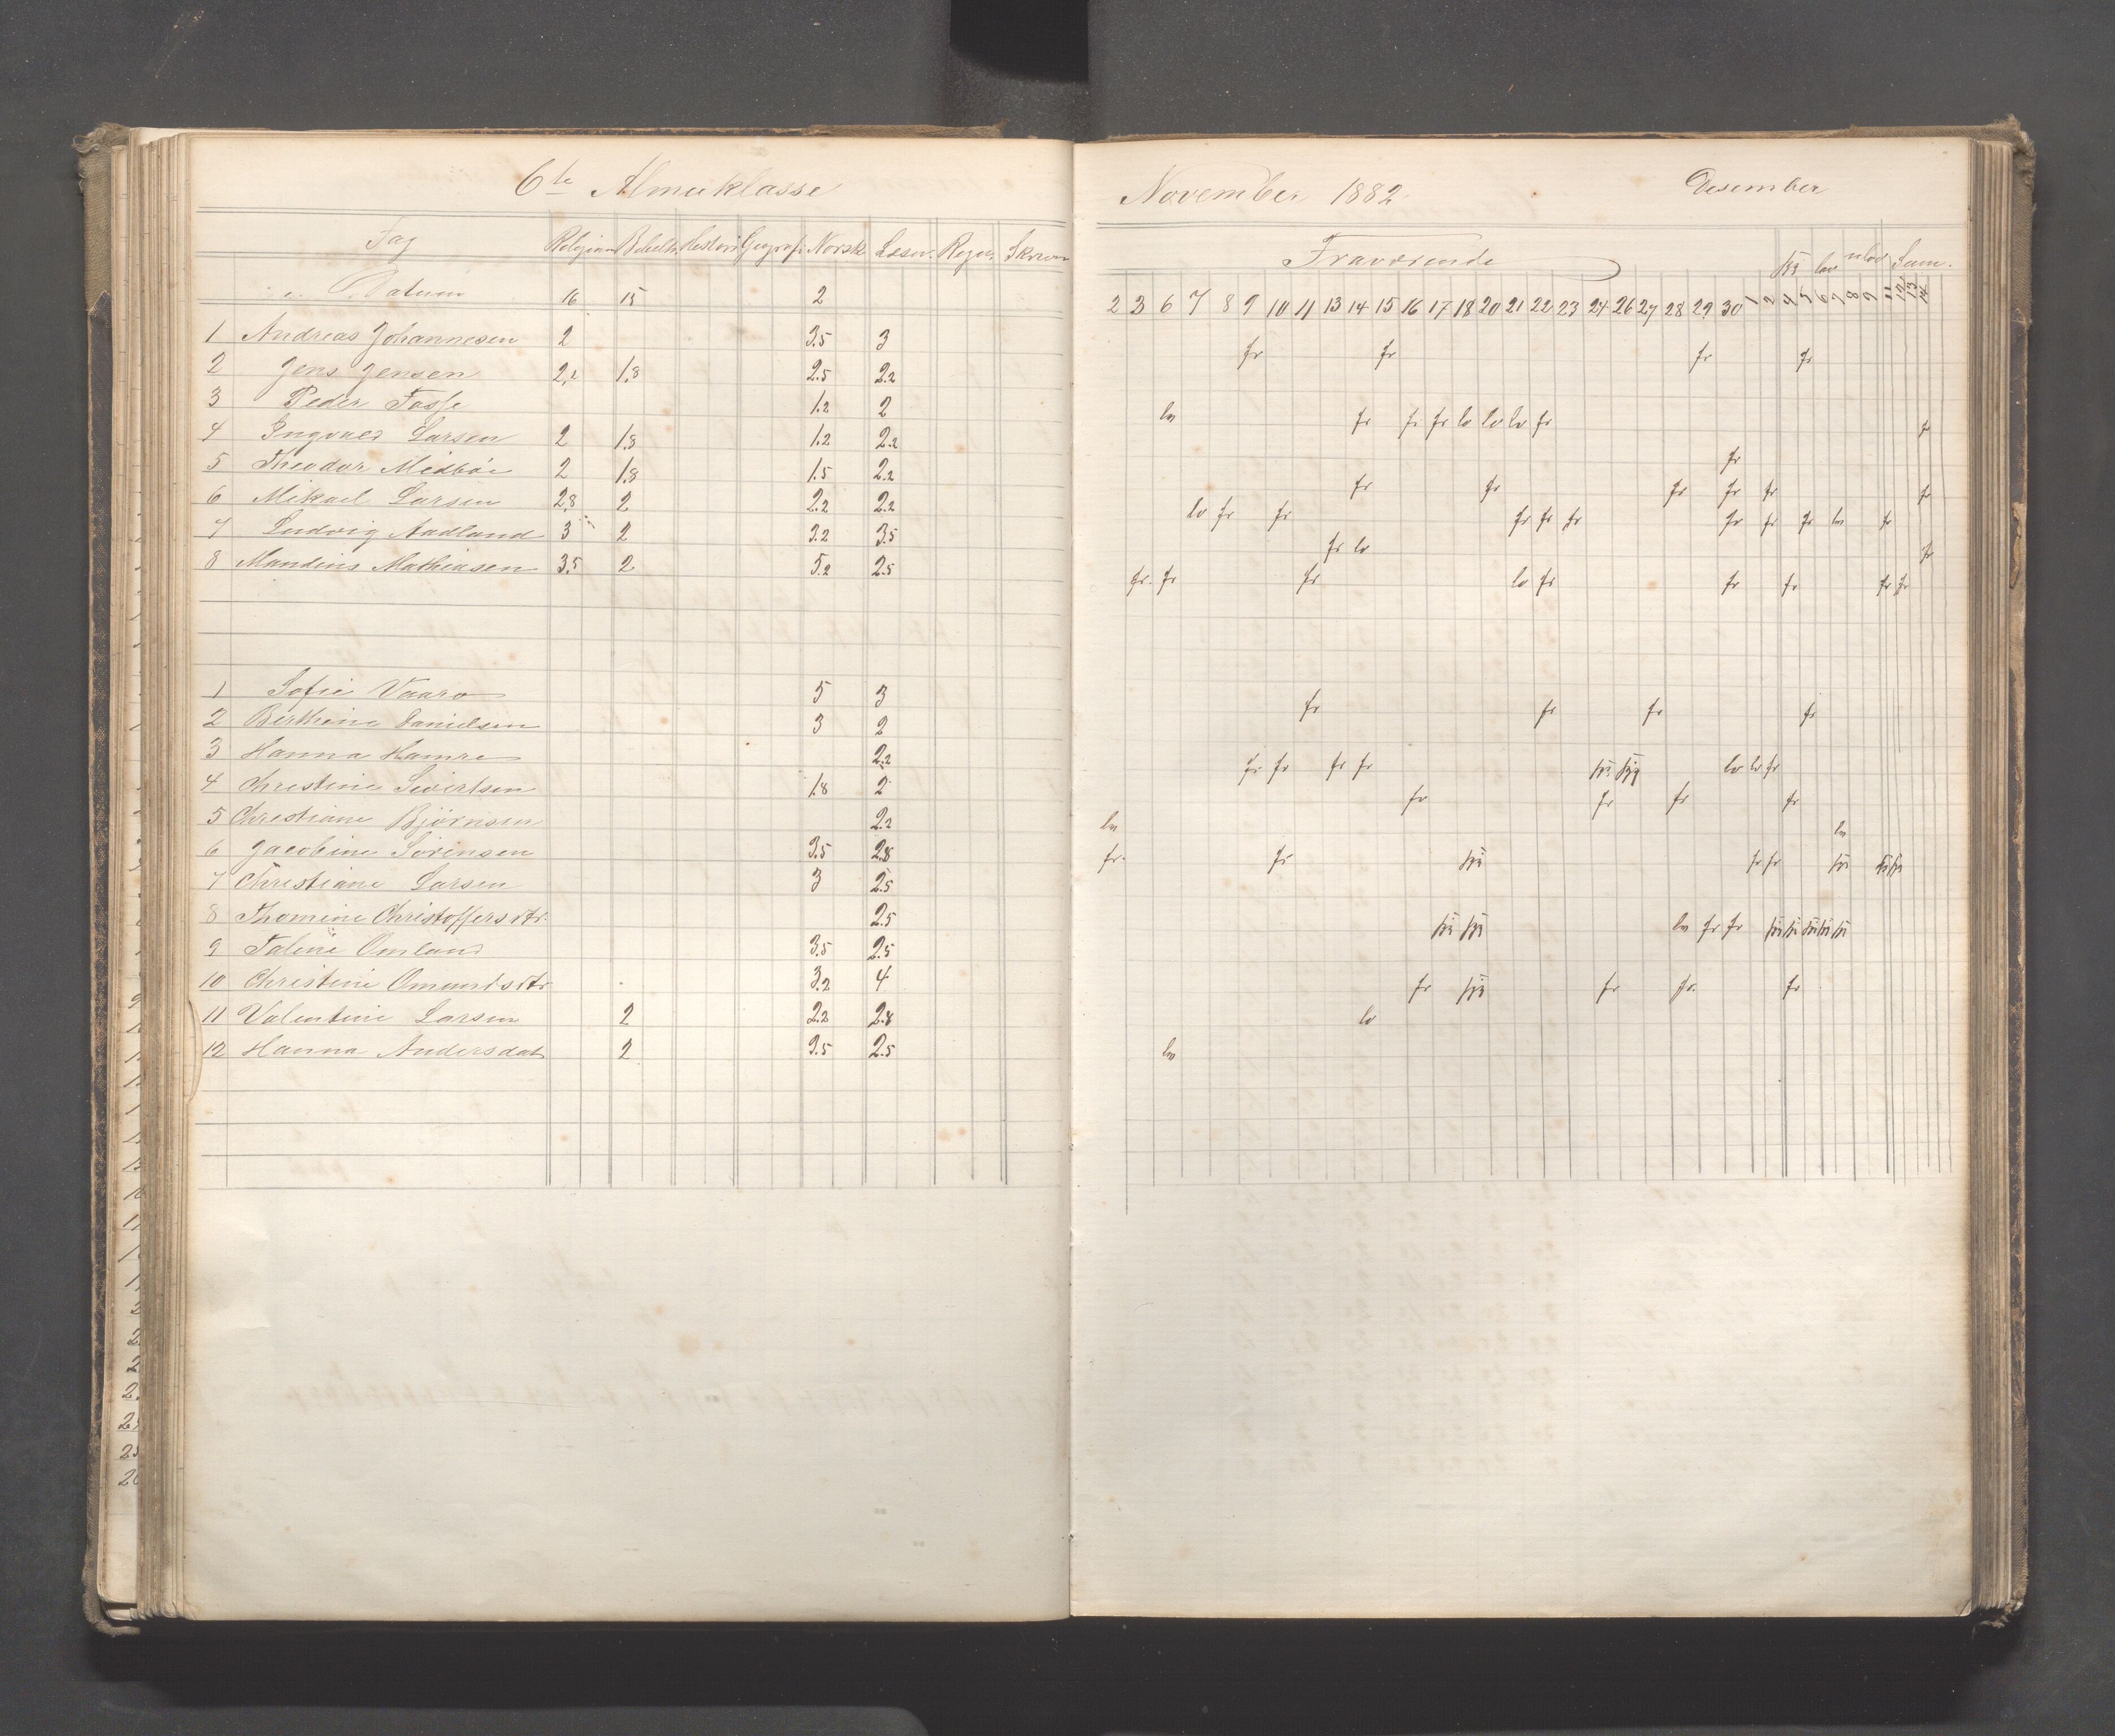 6te Almueklasse
Fag Religion Bibelh. Histori Geografi Norsk Læsn. Regn. Skrivn
Datum 16 15 2
1 Andreas Johannesen 2 3.5 3
2 Jens Jensen 2,2 1,8 2.5 2.2
3 Peder Fasse 1.2 2
4 Ingvald Larsen 2 1,8 1.2 2.2
5 Theodor Midböe 2 1,8 1.5 2.2
6 Mikael Larsen 2,8 2 2.2 2.2
7 Ludvig Aadland 3 2 3.2 3.5
8 Mandius Mathiasen 3,5 2 5.2 2.5
1 Sofie Vaaro 5 3
2 Berthine Danielsen 3 2
3 Hanna Hamre 2.2
4 Christine Sivertsen 1.8 2
5 Christiane Bjørnsen 2.2
6 Jacobine Sörensen 3.5 2.8
7 Christiane Larsen 3 2.5
8 Thomine Christoffersdtr. 2.5
9 Taline Omland 3.5 2.5
10 Christine Omundsdtr 3.2 4
11 Valentine Larsen 2 2.2 2.8
12 Hanna Andersdat 2 3.5 2.5
November 1882 Desember
Fraværende syg lov ulov Sum.
2 3 6 7 8 9 10 11 13 14 15 16 17 18 20 21 22 23 24 26 27 28 29 30 1 2 4 5 6 7 8 9 11 12 13 14
fr fr fr fr
lov fr fr fr lo lo lo fr fr
fr
fr fr fr fr fr fr
lo fr fr fr fr fr fr fr fr lov fr
fr lo fr
fr. fr fr lo fr fr fr fr fr
fr fr fr fr
fr fr fr fr syg syg lo lo fr
fr fr fr fr
lov lov
fr. fr syg fr fr syg syg syg
syg syg lov fr fr syg syg syg syg syg
fr syg fr fr. fr
lo
lov